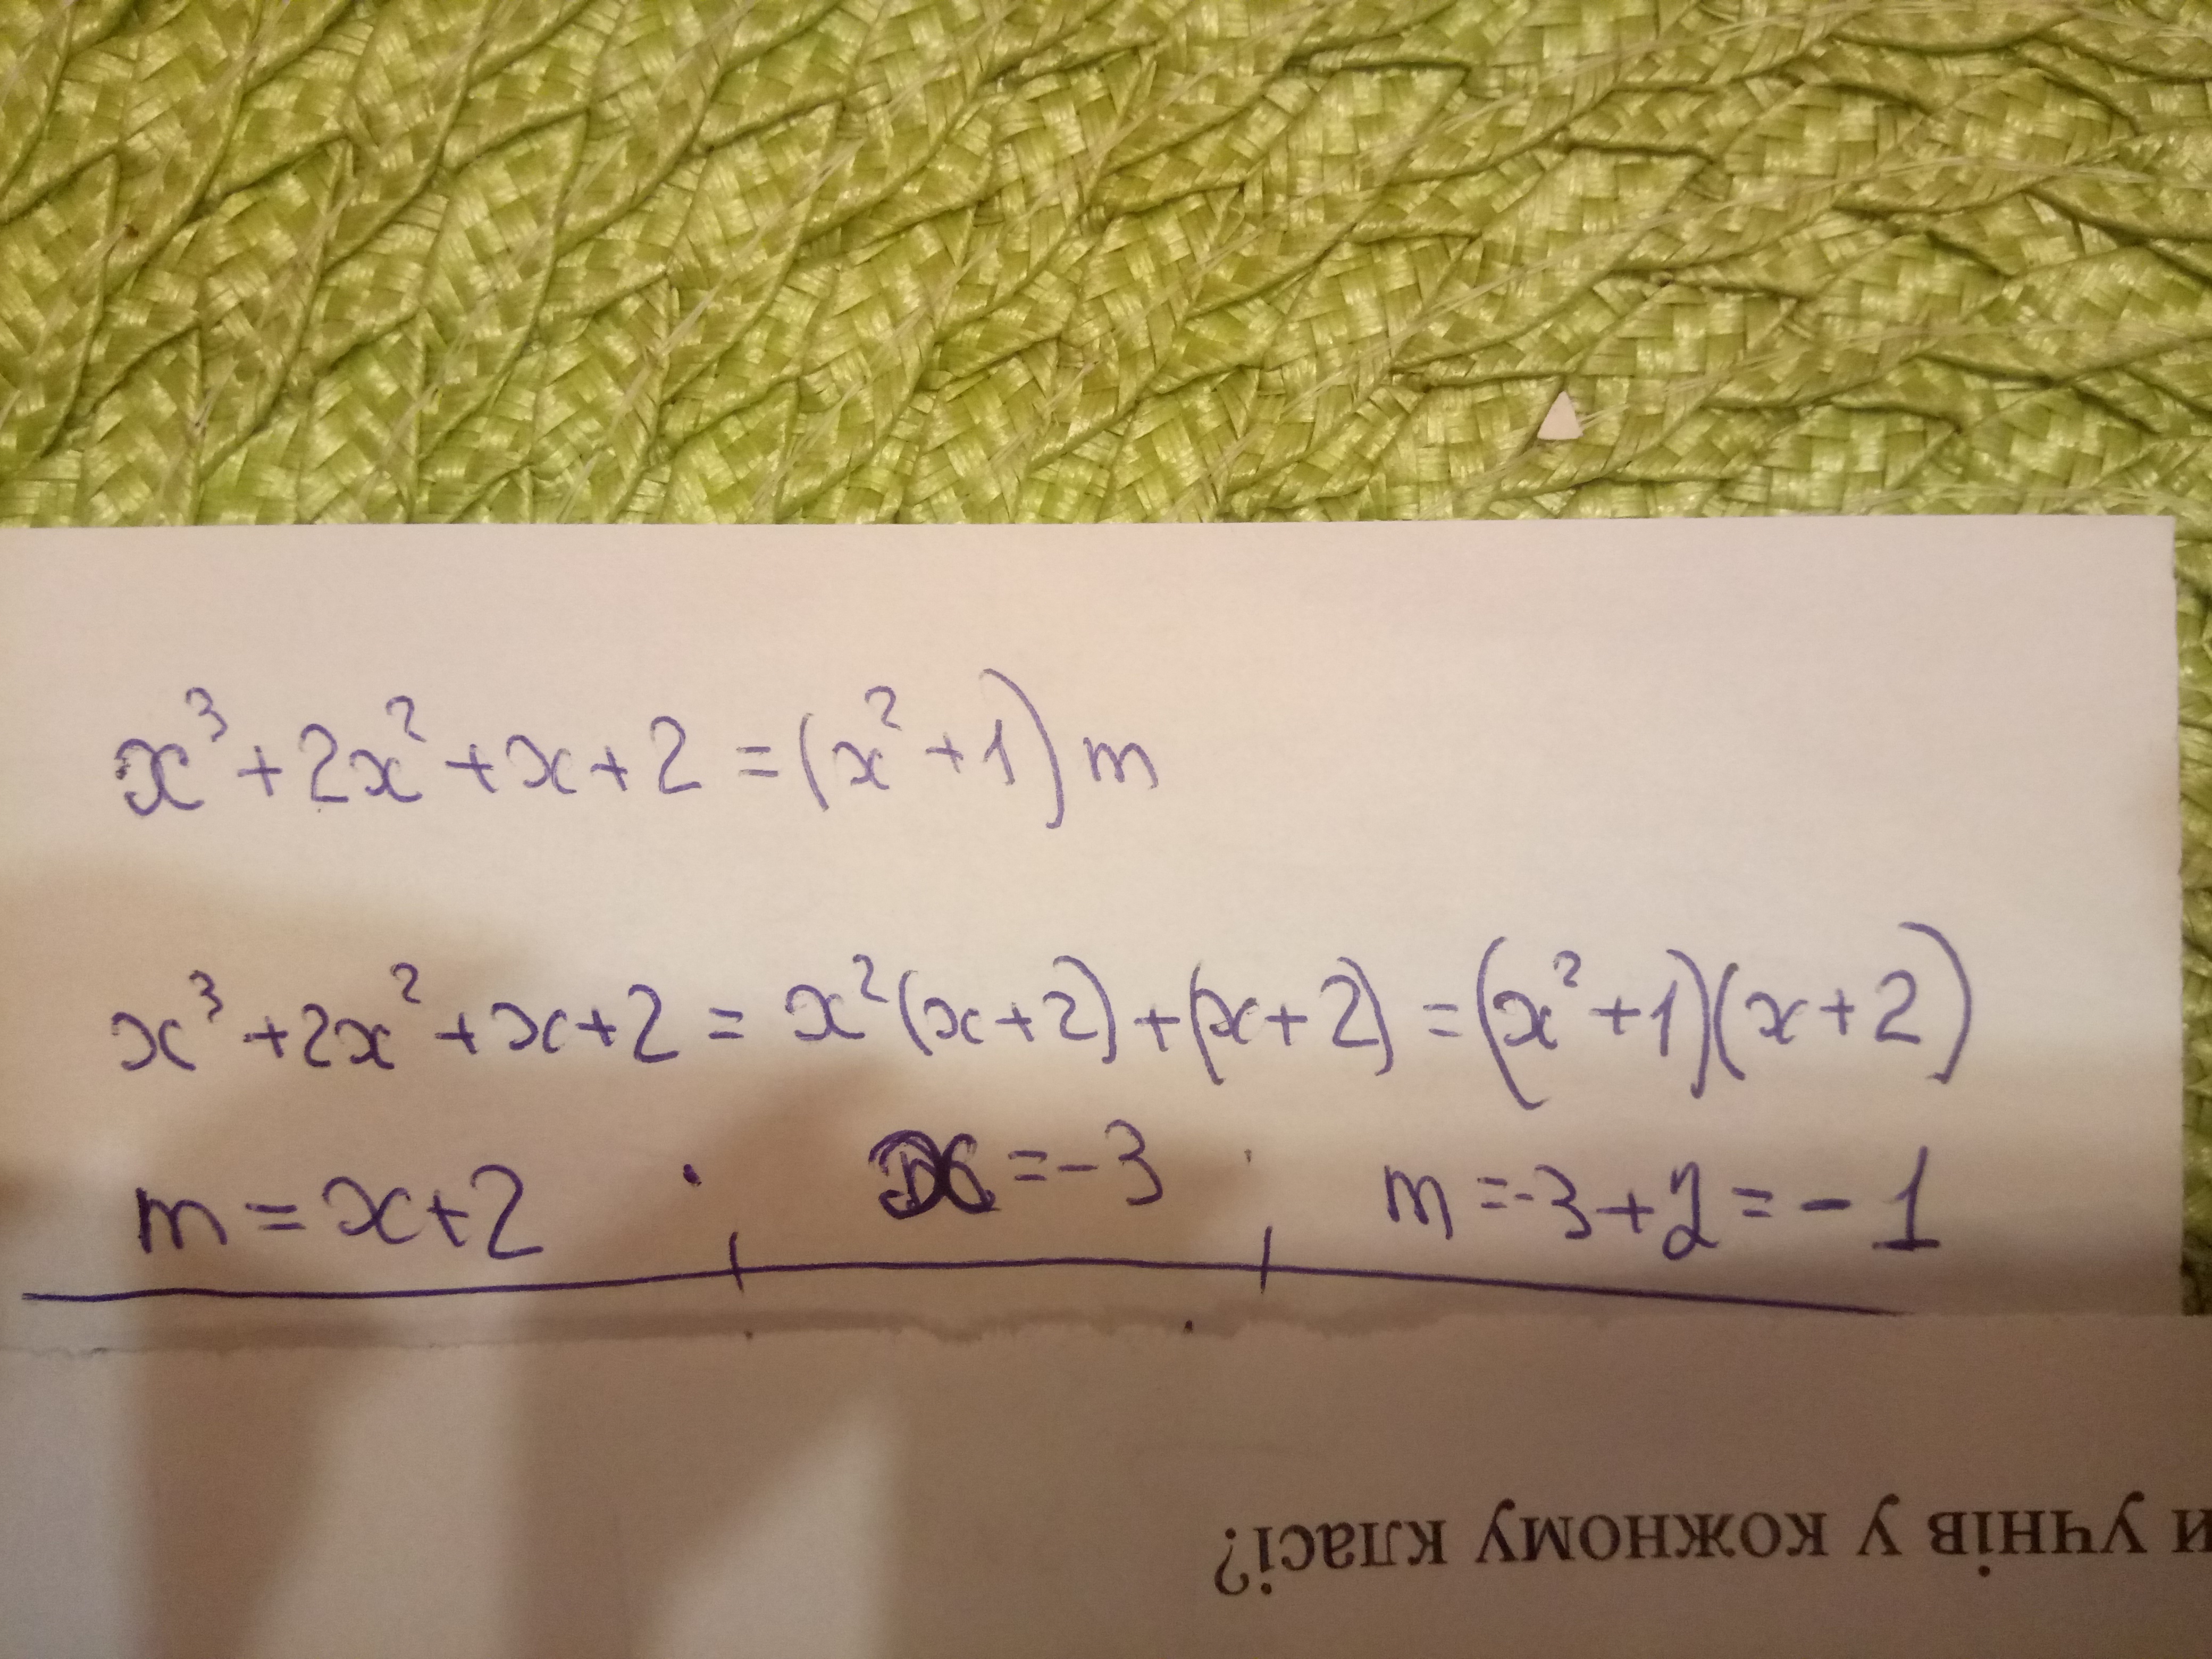 x³+2x²+x+2=(x²+1)m
x³+2x²+x+2=x²(x+2)+(x+2)=(x²+1)(x+2)
m=x+2 x=-3 m=-3+2=-1
и учнів у кожному класі?